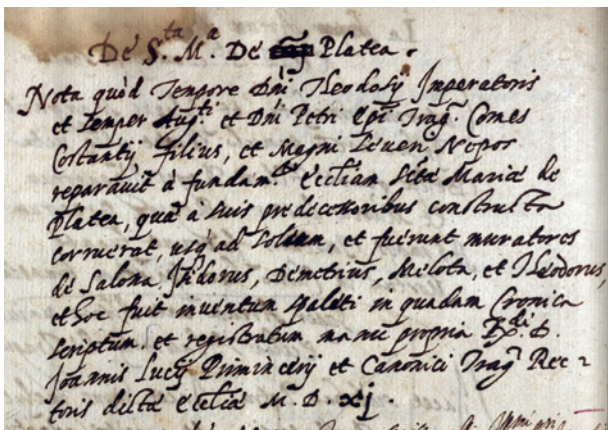 De S.ta M.a De Platea.
Nota quòd Tempore Dñi Theodosij Imperatoris
et semper Aug.ti et Dñi Petri Epĩ Trag. Comes
Costantij filius, et Megni Seueri Nepos
reparauit à fundam.tis Ecclĩam Sctẽ Mariae de
Platea, quae à suis predecessoribus constructa
corruerat, usq ad solum, et fuerunt muratores
de Salona Isidorus, Demetrius, Melota, et Theodorus,
et hoc fuit inuentum Spaleti in quadam Cronica
scriptum, et registratum manu propria D.
Joannis Lucij Primincerij et Canonici Trag. Rec=
toris dictae Ecclĩae M. D. xj.